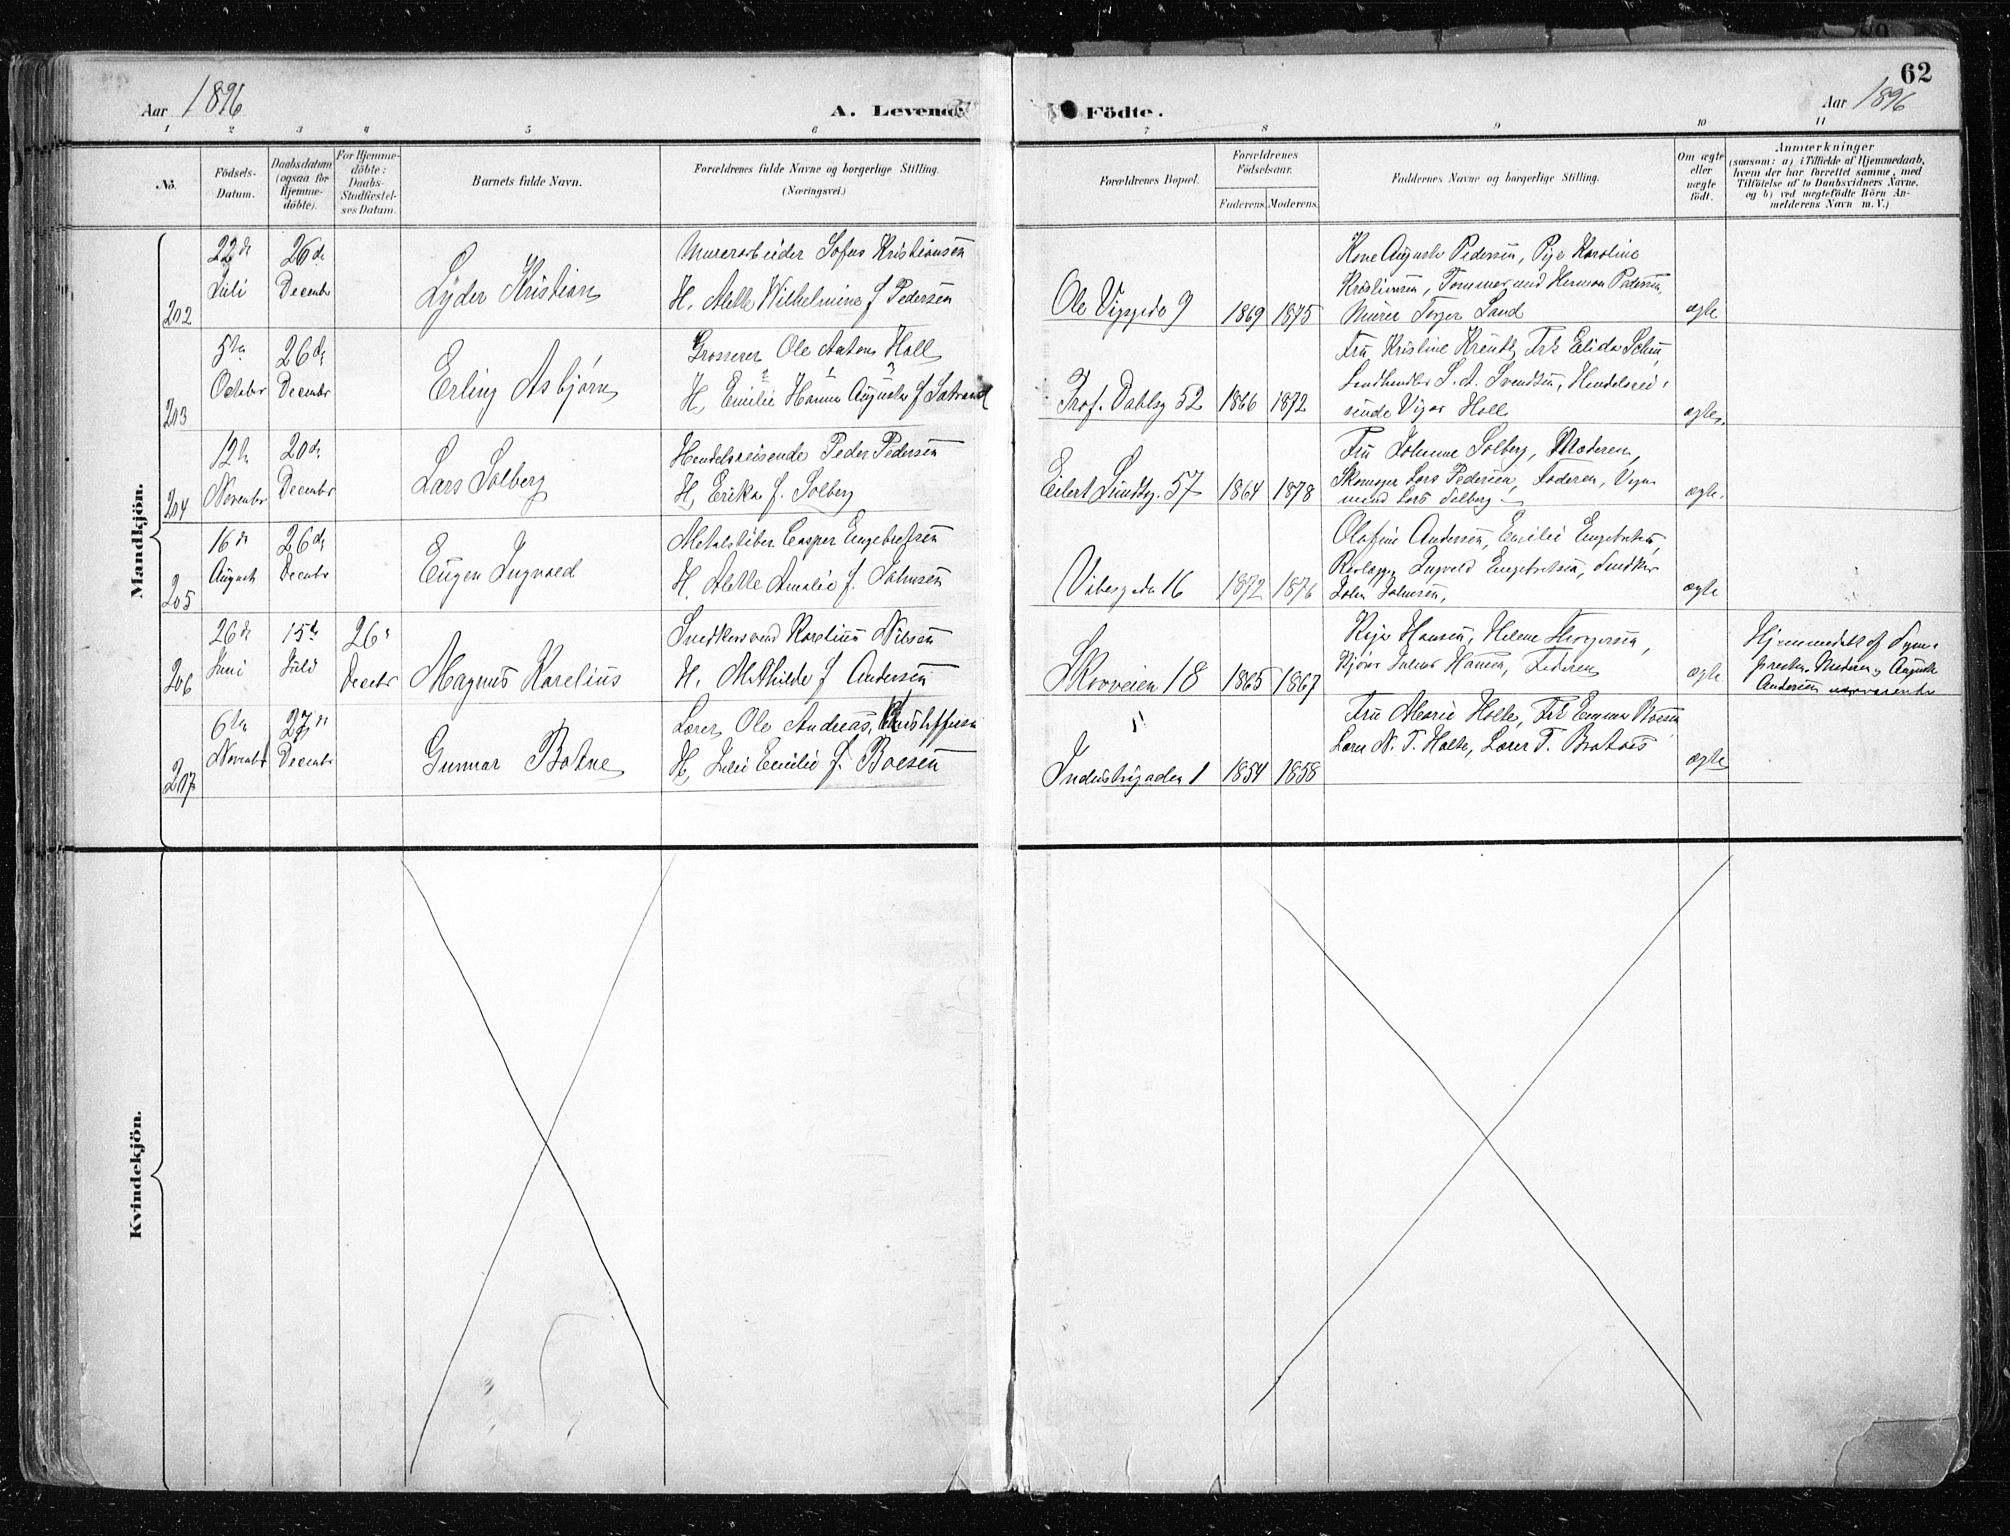 62
Aar 1896
A. Levende
Födte.
Aar 1896
1 2 3 4 5 6 7 8 9 10 11
No.
Födsels-Datum.
Daabsdatum (ogsaa for Hjemme-döbte).
For Hjemme-döbte: Daabs-Stadfæstel-ses Datum.
Barnets fulde Navn.
Forældrenes fulde Navne og borgerlige Stilling.
(Næringsvei.)
Forældrenes Bopæl.
Forældrenes Födselsaar.
Faderens. Moderens.
Faddernes Navne og borgerlige Stilling.
Om ægte eller uægte födt.
Anmærkninger
(saasom: a) i Tilfælde af Hjemmedaab,
hvem der har forrettet samme, med
Tilföielse af to Daabsvidners Navne,
og b) ved uægtefödte Börn An-
melderens Navn m. V.)
Mandkjön.
202
22de Juli
26de Decembr
Lyder Kristian
Murerarbeider Sofus Kristiansen
H. Alette Wilhelmine f Pedersen
Ole Viggsgde 9
1869 1875
Kone Augusta Pedersen, Pige Karoline
Kristiansen, Tømmermand Herman Pedersen,
Murer Torger Sand
ægte
203
5te October
26de Decembr
Erling Asbjørn
Grosserer Ole Anton Holl
H. Emilie Hanna Augusta f
2 1 3
Prof. Dahlsg 52
1866 1872
Fru Kristine
Landhandler S. A. Svendsen, Handelsrei-
sende Holl
ægte.
204
12te Novembr
20de Decembr
Lars Solberg
Handelsreisende Peder Pedersen
H. Erika f. Solberg
Eilert Sundtsg. 57
1864 1878
Fru Johanne Solberg, Moderen,
Skomager Lars Pedersen, Faderen, Vogn-
mand Lars Solberg
ægte.
205
16de August
26de Decembr
Eugen Ingvald
Metalstøber Casper Engebretsen
H. Alette Amalie f. Johnsen
Vibesgaden 16
1872 1876
Olafine Andersen, Emilie Engebretsen,
Ingvald Engebretsen, Snedker
John Johnsen,
ægte
206
26de Juni
15de Juli
26de Decembr
Magnus Karelius
Snedkersvend Karelius Nilsen
H. Mathilde f Andersen
Skovveien 18
1865 1867
Kaja Hansen, Helene
Julius Hansen, Faderen
ægte
Hjemmedøbt af
Moderen, Augusta
Andersen nærværende
207
6te Novembr
27de Decembr
Gunnar Bohne
Lærer Ole Andreas Christoffersen
H. Julie Emilie f. Boesen
Industrigaden 1
1854 1858
Fru Marie Holte, Frk Emma Boesen
Lærer N. T. Holte, Lærer T.
ægte
Kvindekjön.